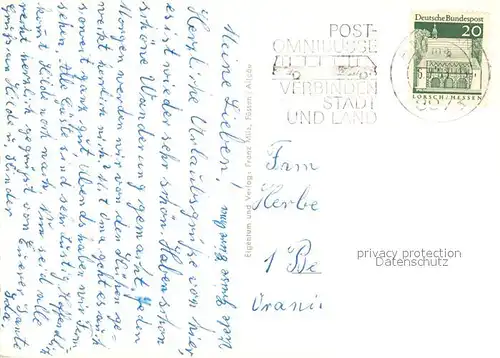 Meine Lieben!
Herzliche Urlaubsgrüße von hier
es ist wieder sehr schön. Haben schon
schöne Wanderung gemacht, jeden
Morgen werden wir von den Kühen ge-
weckt herrlich nicht? Mit Oma geht es auch
soweit ganz gut. Abends haben wir Fern
sehen. Alle Leute sind sehr lustig. Hoffentlich
kommt Heidi noch nach. Nun seid alle
recht herzlich gegrüßt von Eurer Tante
Gruß an Hilde u Kinder Ida.
viele Grüße
Eigentum und Verlag: Franz Milz, Füssen i. Allgäu
POST-
OMNIBUSSE
VERBINDEN
STADT
UND LAND
Deutsche Bundespost
20
LORSCH/HESSEN
Fam
Herbe
1 Be
Orani
privacy protection
Datenschutz